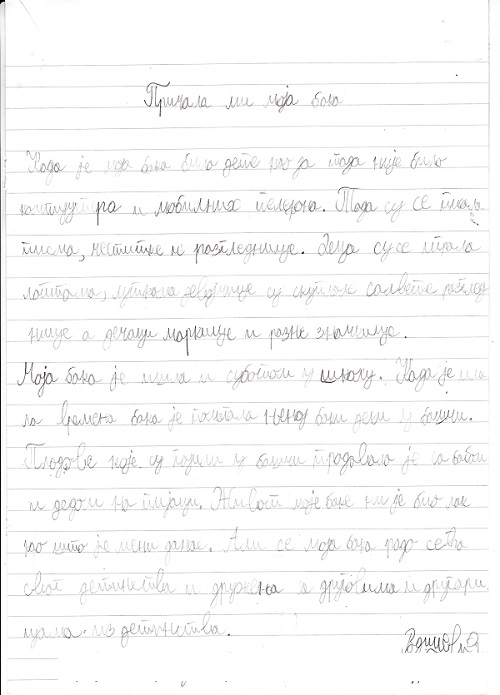 Причала ми моја бака
Када је моја бака била дете као за тада није било
компјутера и мобилних телефона. Тада су се писала
писма, честитке и разгледнице. Деца су се играла
лоптама, луткама девојчице су скупљале салвете разглед
нице а дечаци маркице и разне значкице.
Моја бака је ишла и суботом у школу. Када је има
ла времена бака је помагала њеној баки деки у башти.
Плодове које су гајили у башти продавала је са бабом
и дедом на пијаци. Живот моје баке није био лак
као што је мени данас. Али се моја бака радо сећа
свог детињства и дружења са друговима и другари
цама из детињства.